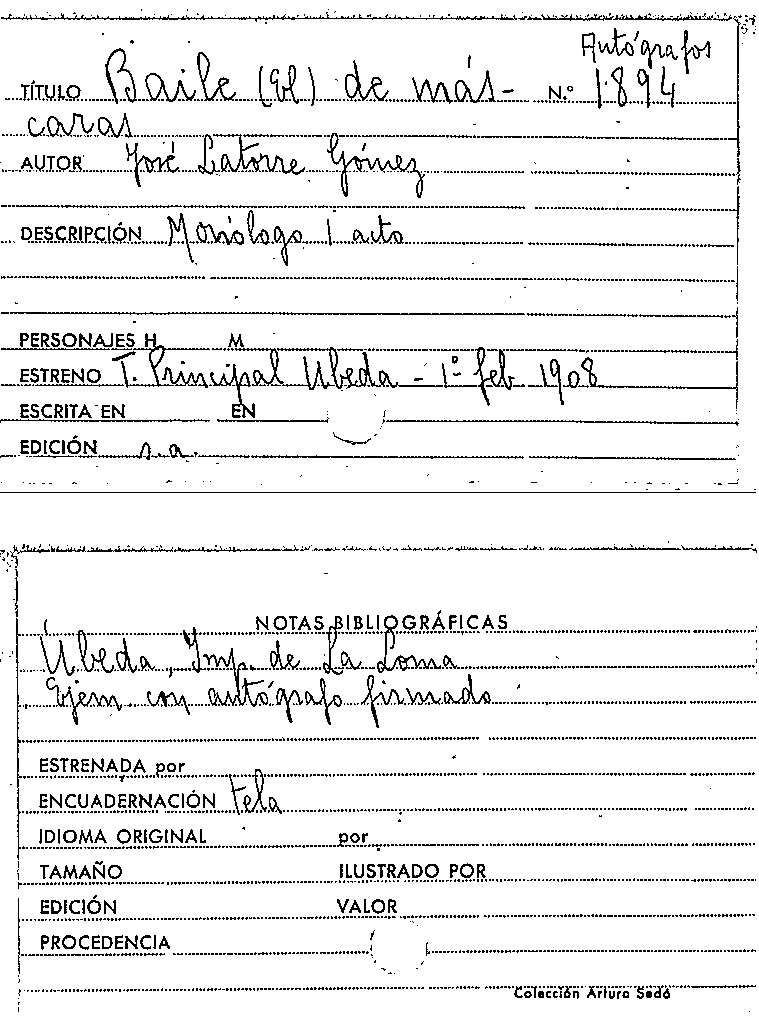 Autógrafos
TÍTULO Baile (El) de más- N.º 1.894
caras
AUTOR José Latorre Gómez
DESCRIPCIÓN Monólogo 1 acto
PERSONAJES H. M
ESTRENO T. Principal Ubeda - 1º feb 1908
ESCRITA EN EN
EDICIÓN s.a.
NOTAS BIBLIOGRÁFICAS
Úbeda, Imp. de La Loma
Ejem. con autógrafo firmado
ESTRENADA por
ENCUADERNACIÓN tela
IDIOMA ORIGINAL por
TAMAÑO ILUSTRADO POR
EDICIÓN VALOR
PROCEDENCIA
Colección Arturo Sedó